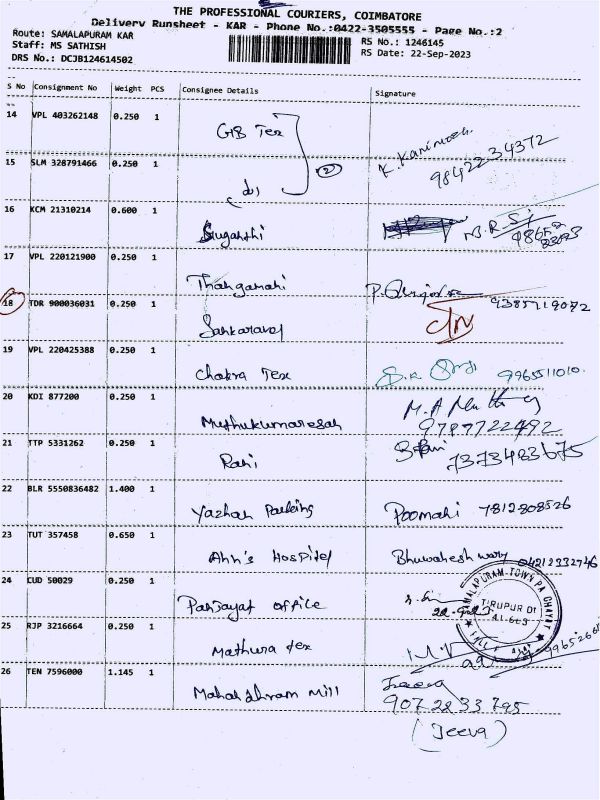 THE PROFESSIONAL COURIERS, COIMBATORE
Delivery Runsheet - KAR - Phone No.:0422-3505555 - Page No.:2
Route: SAMALAPURAM KAR
RS No.: 1246145
Staff: MS SATHISH
RS Date: 22-Sep-2023
DRS No.: DCJB124614502
S No Consignment No Weight PCS Consignee Details Signature
14 VPL 403262148 0.250 1
GB Tex
9842234372
15 SLM 328791466 0.250 1
(2)
16 KCM 21310214 0.600 1
Suganthi
17 VPL 220121900 0.250 1
Thangamani
9385719072
18 TDR 900036031 0.250 1
19 VPL 220425388 0.250 1
Chakra Tex
9965511010.
20 KDI 877200 0.250 1
Muthukumaresan
9789722492
21 TTP 5331262 0.250 1
Rani
7373483675
22 BLR 5550836482 1.400 1
Yazhan Packing Poomani 7812808526
23 TUT 357458 0.650 1
Ann's Hospitel Bhuwaneshwary 04212332746
24 CUD 50029 0.250 1
Panjayat office
TIRUPUR Dt
25 RJP 3216664 0.250 1
Mathura tex
26 TEN 7596000 1.145 1
Mahadhram Mill
Jeeva
9072833795
(Jeeva)